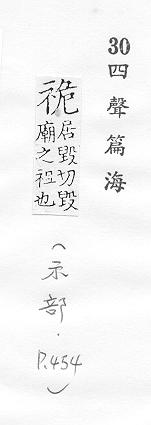 30四聲篇海
祪
居毀切毀
廟之祖也
(示部·P.454)